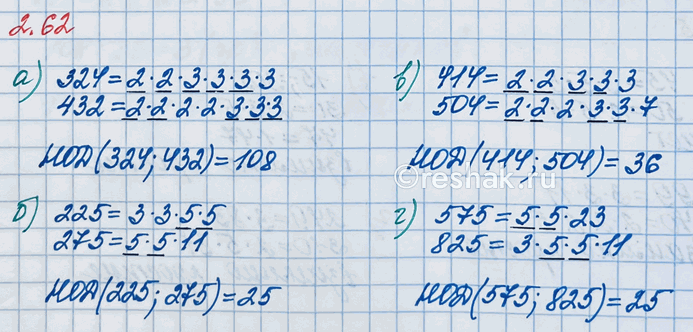 2.62
а) 324 = 2·2·3·3·3·3
432 = 2·2·2·2·3·3·3
НОД(324; 432) = 108
б) 225 = 3·3·5·5
275 = 5·5·11
НОД(225; 275) = 25
в) 414 = 2·2·3·3·3
504 = 2·2·2·3·3·7
НОД(414; 504) = 36
г) 575 = 5·5·23
825 = 3·5·5·11
НОД(575; 825) = 25
©reshak.ru